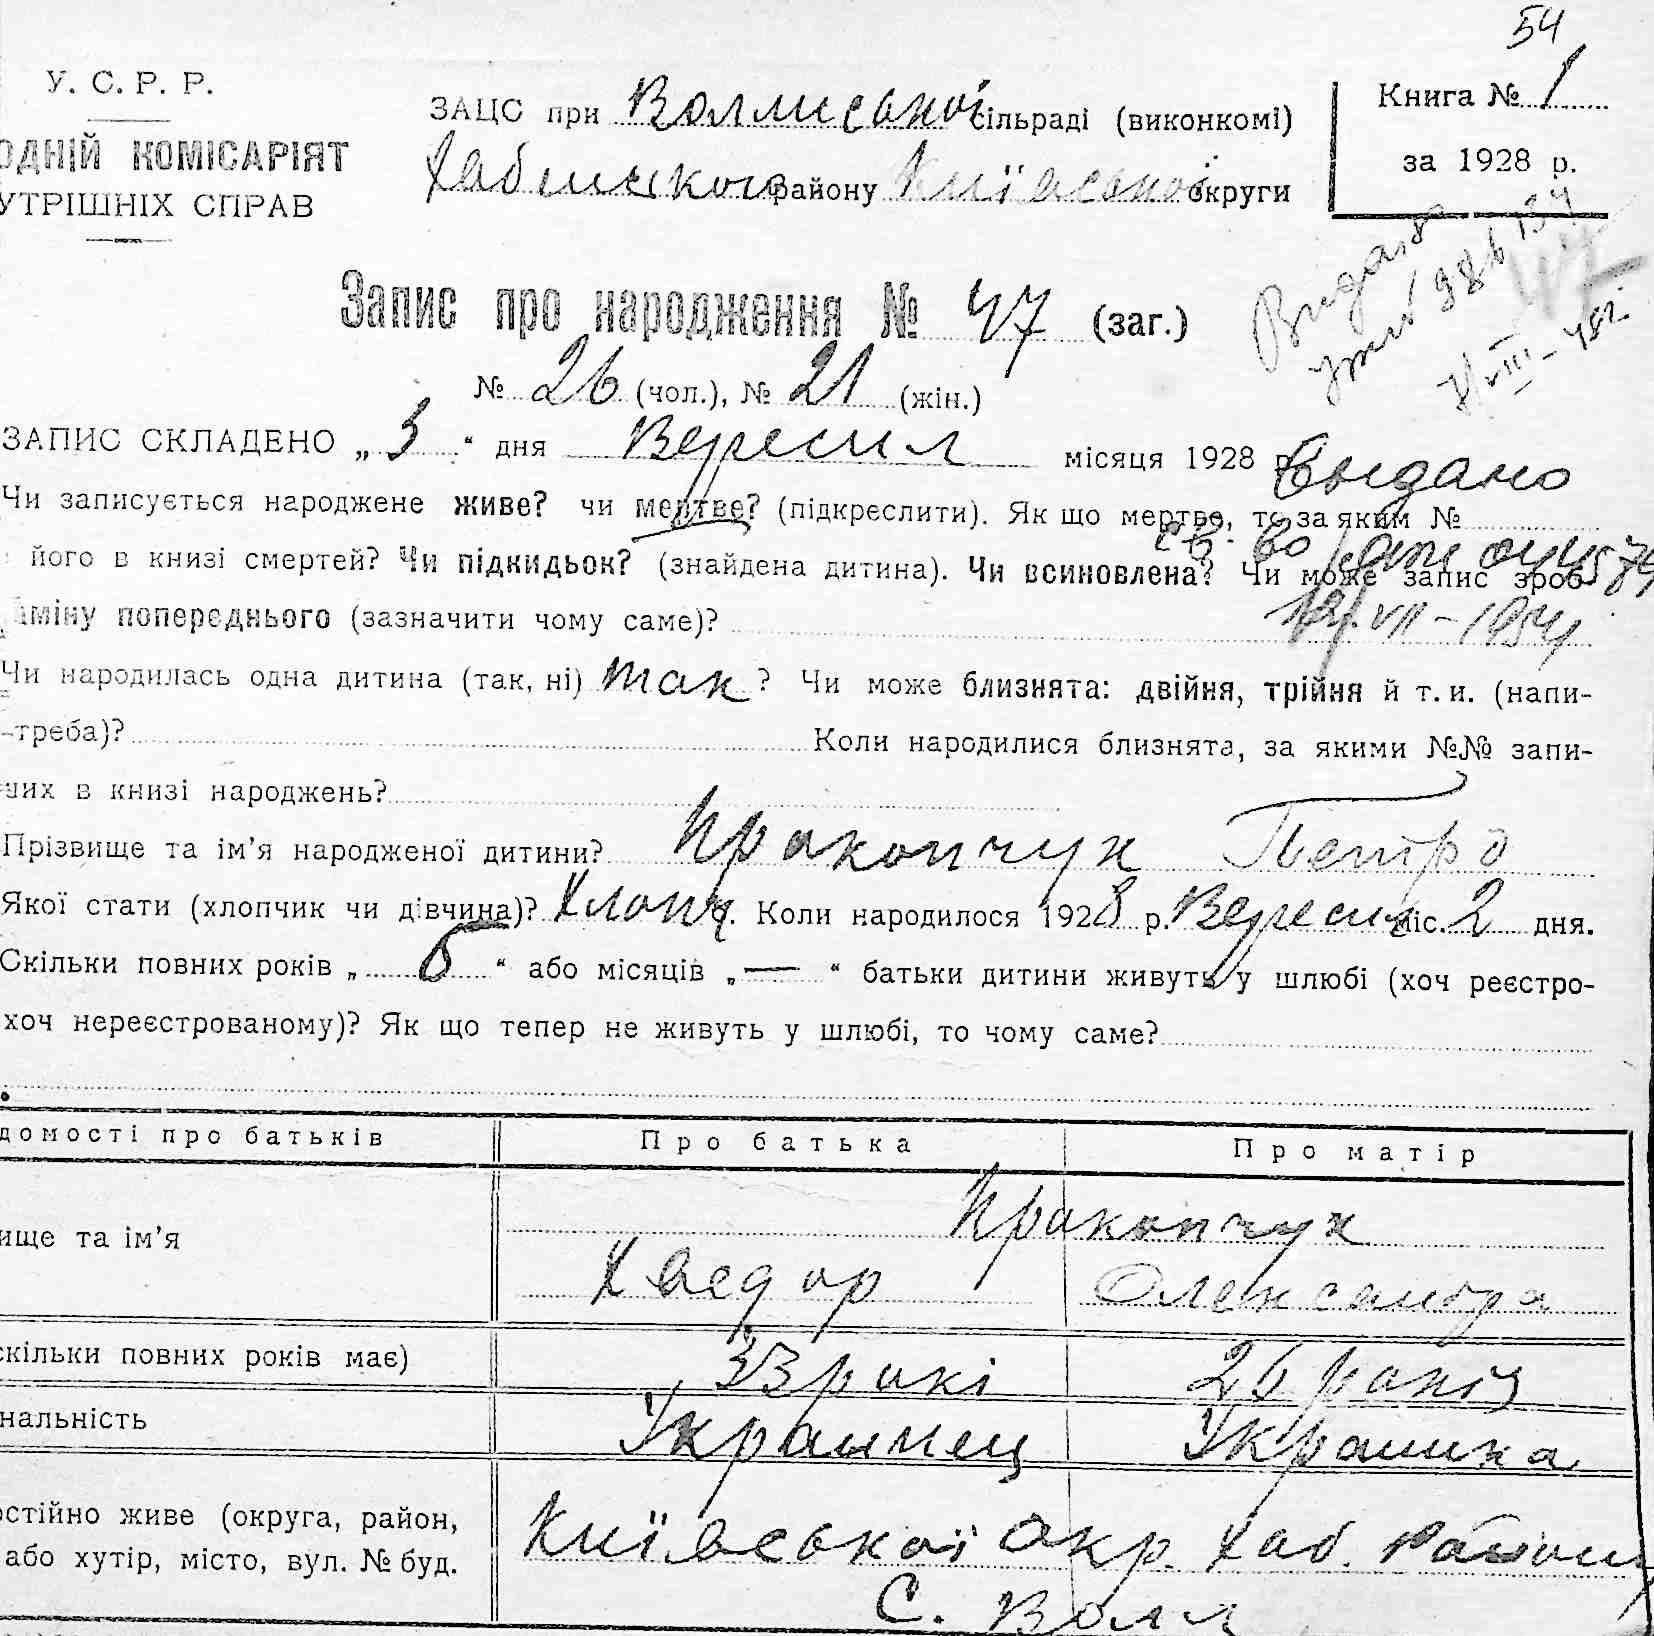 54
У. С. Р. Р.
ОДНІЙ КОМІСАРІЯТ
УТРІШНІХ СПРАВ
ЗАЦС при сільраді (виконкомі)
району Київської округи
Книга № 1
за 1928 р.
Запис про народження № 47 (заг.)
№ 26 (чол.), № 21 (жін.)
ЗАПИС СКЛАДЕНО „ 3 “ дня Вересня місяця 1928 р.
Выдано
Чи записується народжене живе? чи мертве? (підкреслити). Як що мертве, то за яким №
св-во
його в книзі смертей? Чи підкидьок? (знайдена дитина). Чи всиновлена? Чи може запис зроб
аміну попереднього (зазначити чому саме)?
VII – 1954
Чи народилась одна дитина (так, ні) так ? Чи може близнята: двійня, трійня й т. и. (напи-
-треба)? Коли народилися близнята, за якими №№ запи-
них в книзі народжень?
Прізвище та ім’я народженої дитини? Пракопчук Петро
Якої стати (хлопчик чи дівчина)? Хлопч. Коли народилося 1928 р. Вересня міс. 2 дня.
Скільки повних років „ 6 “ або місяців „ — “ батьки дитини живуть у шлюбі (хоч реєстро-
хоч нереєстрованому)? Як що тепер не живуть у шлюбі, то чому саме?
домості про батьків Про батька Про матір
ище та ім’я Пракопчук
Хведор Олександра
скільки повних років має) 33 рокі 26 рокій
нальність Украинец Украинка
остійно живе (округа, район, Київської окр. Хаб. району
або хутір, місто, вул. № буд.
с.